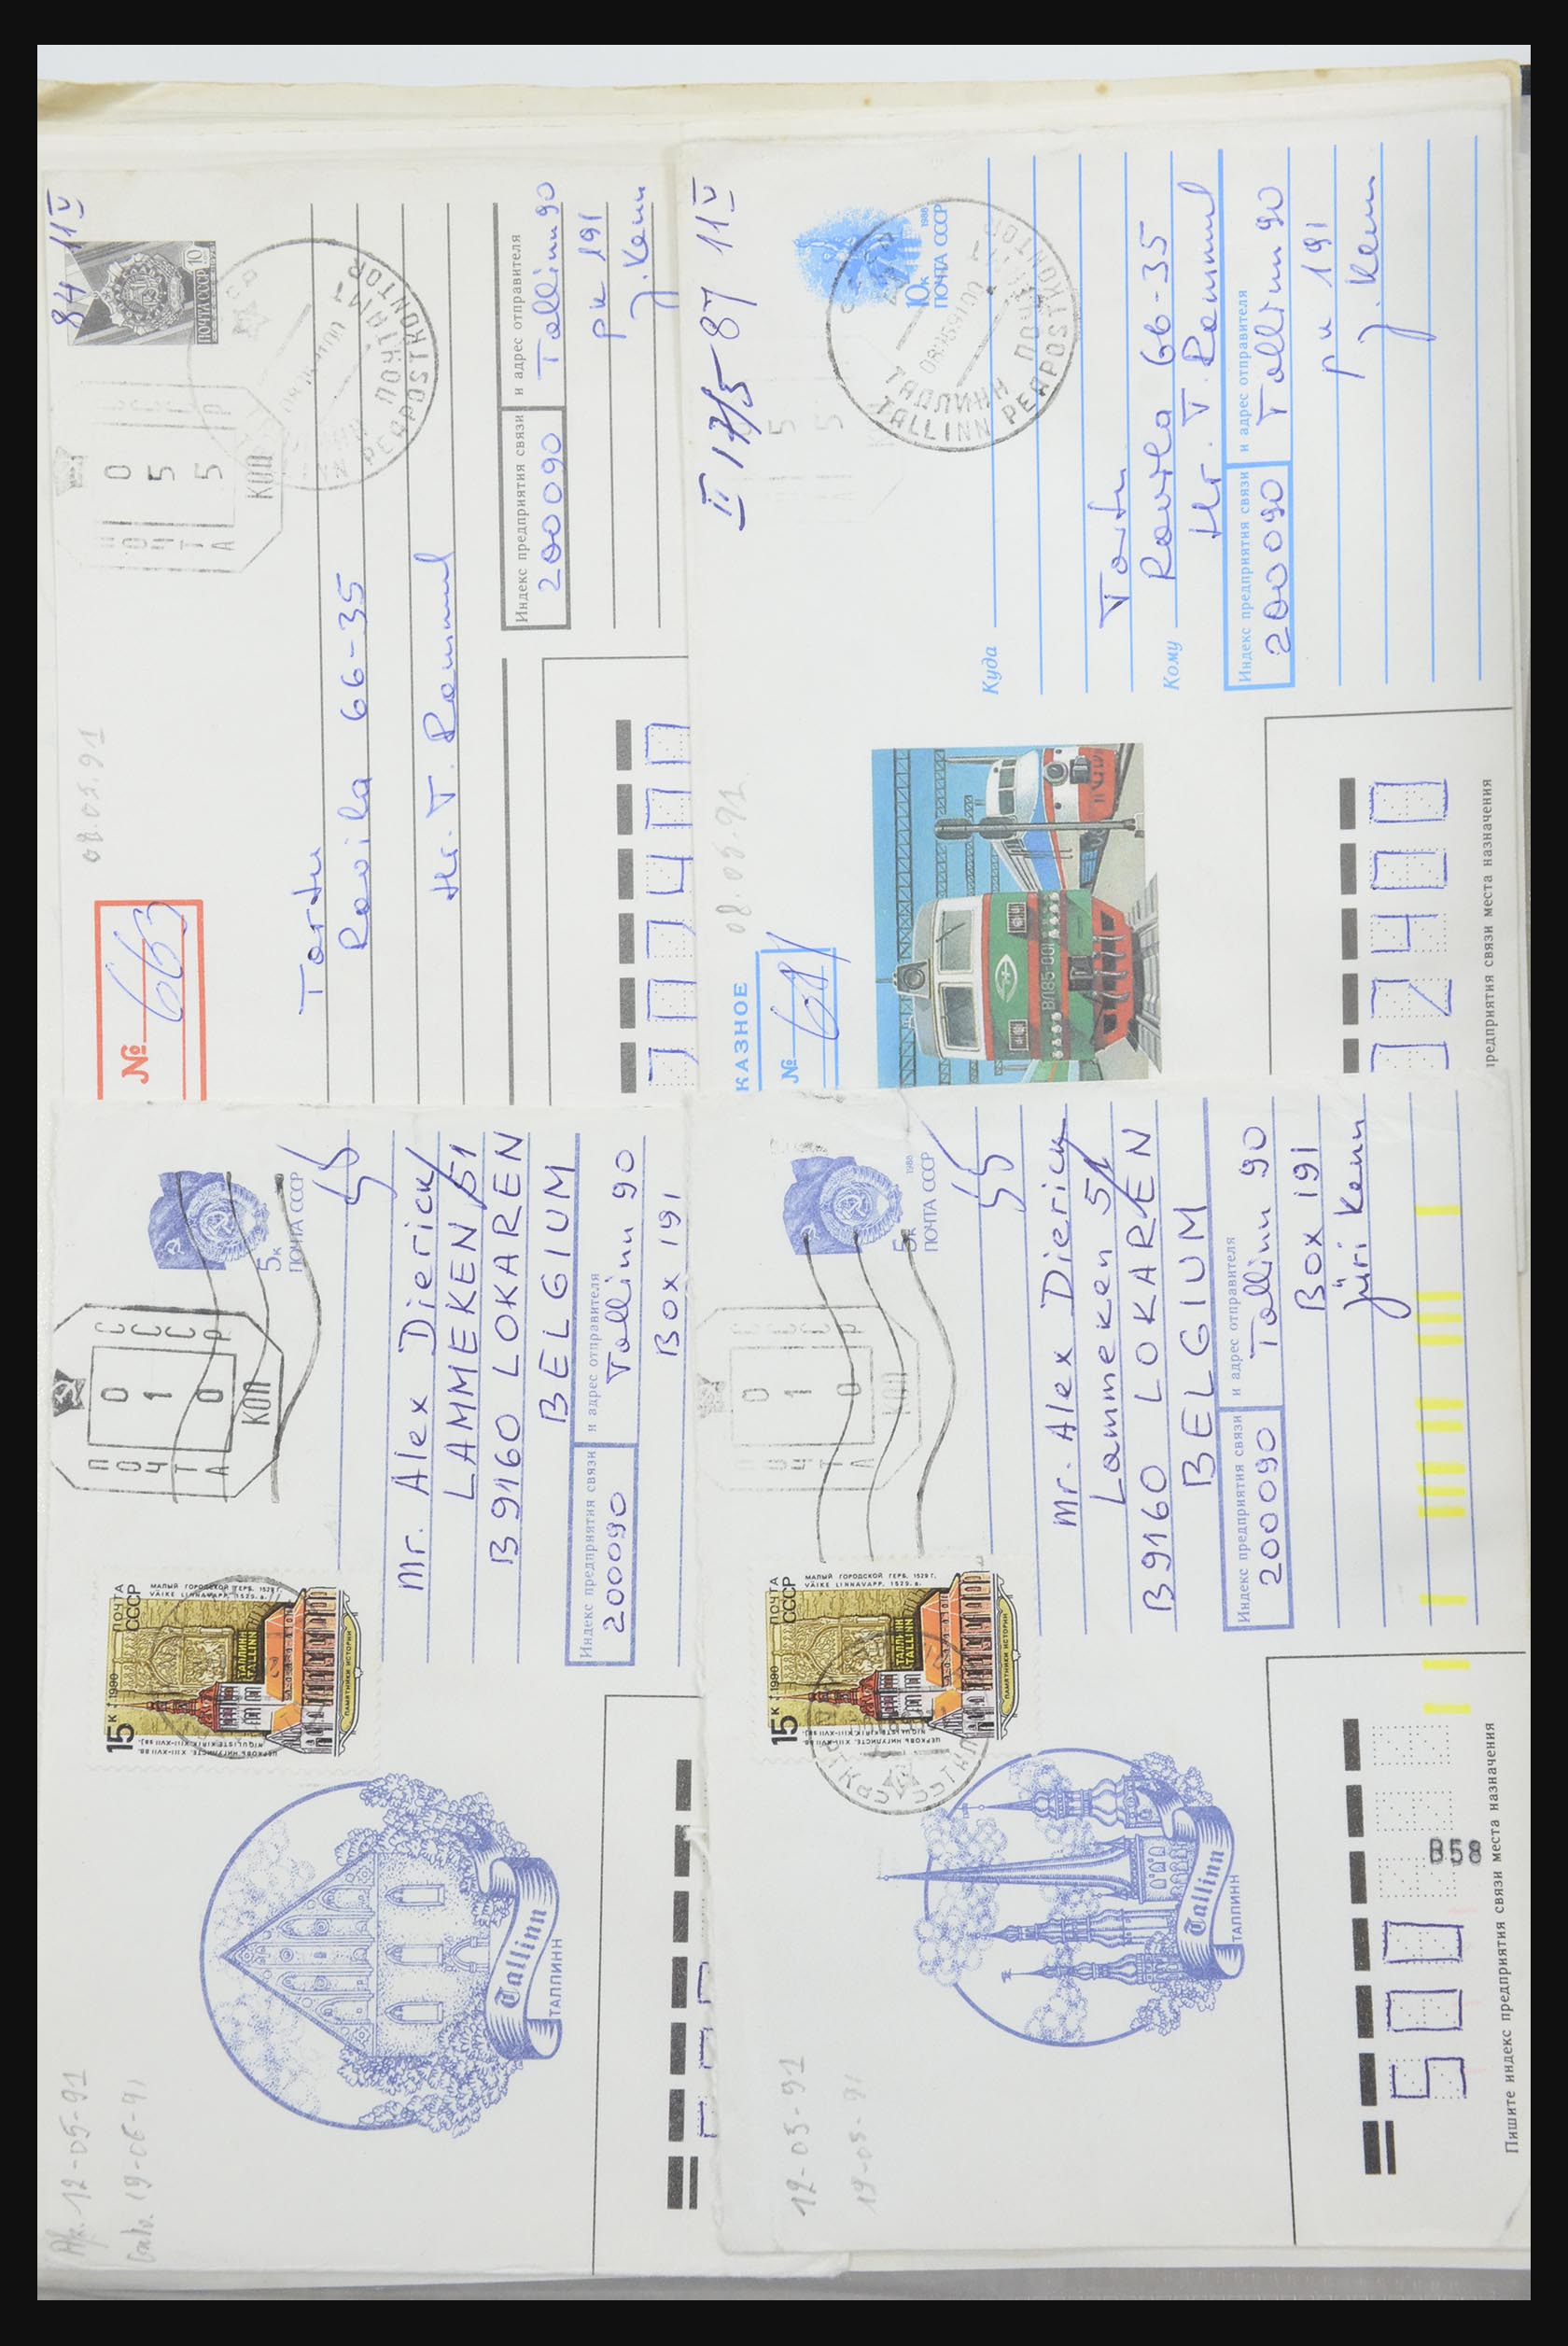 84 11 V
ПОЧТА СССР 10
ПОЧТА
0 5 5
КОП
PEAPOSTKONTOR
08.05.91
№ 663
Tartu
Ravila 66-35
Hr. T. Rammul
Индекс предприятия связи и адрес отправителя
200090 Tallinn 90
pk 191
J. Kenn
II 17/5-87 11 V
10к
1988
ПОЧТА СССР
ТАЛЛИНН ПОЧТАМТ
TALLINN PEAPOSTKONTOR
5 5
08.05.91
КАЗНОЕ
№
ВЛ85-001
Куда
Tartu
Ravila 66-35
Кому
Hr. T. Rammul
Индекс предприятия связи и адрес отправителя
200090 Tallinn 90
pk 191
J. Kenn
2400
редприятия связи места назначения
12-05-91
ПОЧТА СССР
0 1 0
КОП
5к
ПОЧТА СССР
15к 1990 ПОЧТА СССР
МАЛЫЙ ГОРОДСКОЙ ГЕРБ, 1529 г.
VÄIKE LINNAVAPP, 1529. a.
ТАЛЛИН
TALLINN
ЦЕРКОВЬ НИГУЛИСТЕ, XIII-XVII вв.
NIGULISTE KIRIK, XIII-XVII saj.
ПАМЯТНИКИ ИСТОРИИ
Mr. Alex Dierick
LAMMEKEN 51
B 9160 LOKAREN
BELGIUM
Индекс предприятия связи и адрес отправителя
200090 Tallinn 90
BOX 191
Tallinn
ТАЛЛИНН
12-05-91
19-05-91
ПОЧТА СССР
0 1 0
КОП
5к
1988
ПОЧТА СССР
15к 1990 ПОЧТА СССР
МАЛЫЙ ГОРОДСКОЙ ГЕРБ, 1529 г.
VÄIKE LINNAVAPP, 1529. a.
ТАЛЛИН
TALLINN
ЦЕРКОВЬ НИГУЛИСТЕ, XIII-XVII вв.
NIGULISTE KIRIK, XIII-XVII saj.
ПАМЯТНИКИ ИСТОРИИ
Mr. Alex Dierick
Lammeken 51
B 9160 LOKAREN
BELGIUM
Индекс предприятия связи и адрес отправителя
200090 Tallinn 90
BOX 191
Jüri Kenn
Tallinn
ТАЛЛИНН
500
B58
Пишите индекс предприятия связи места назначения